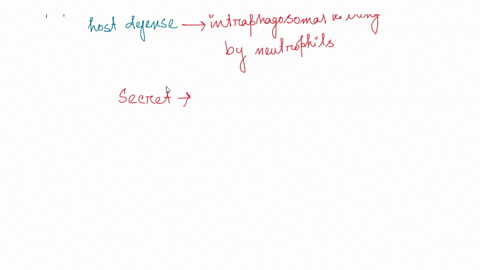 host defense → intraphagosomal killing
by neutrophils
Secret →